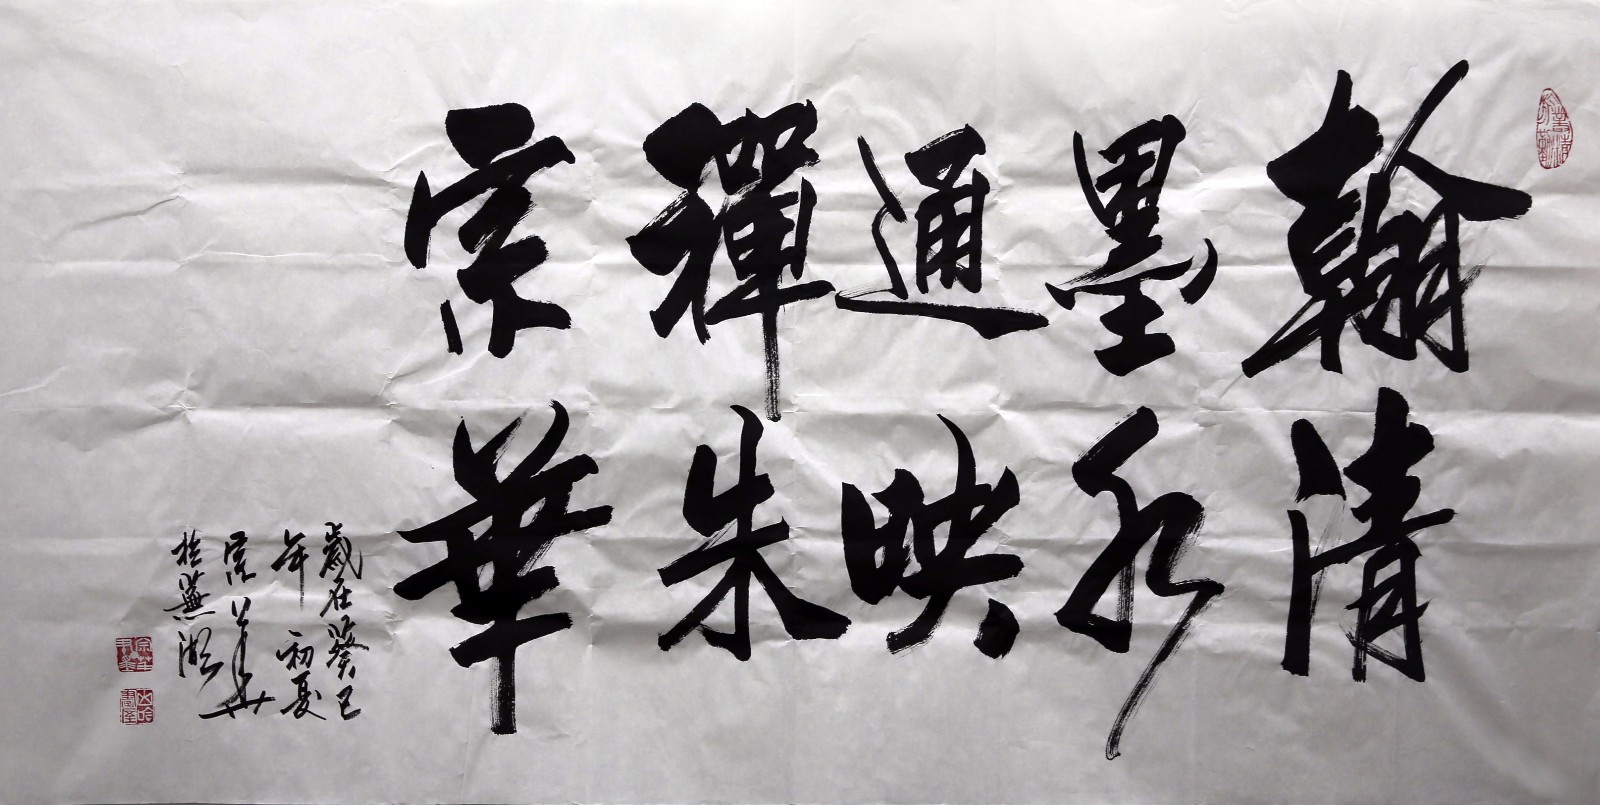 翰清
墨水
通映
禪朱
宗華
歲在癸巳
年初夏
宗華
於蕪湖